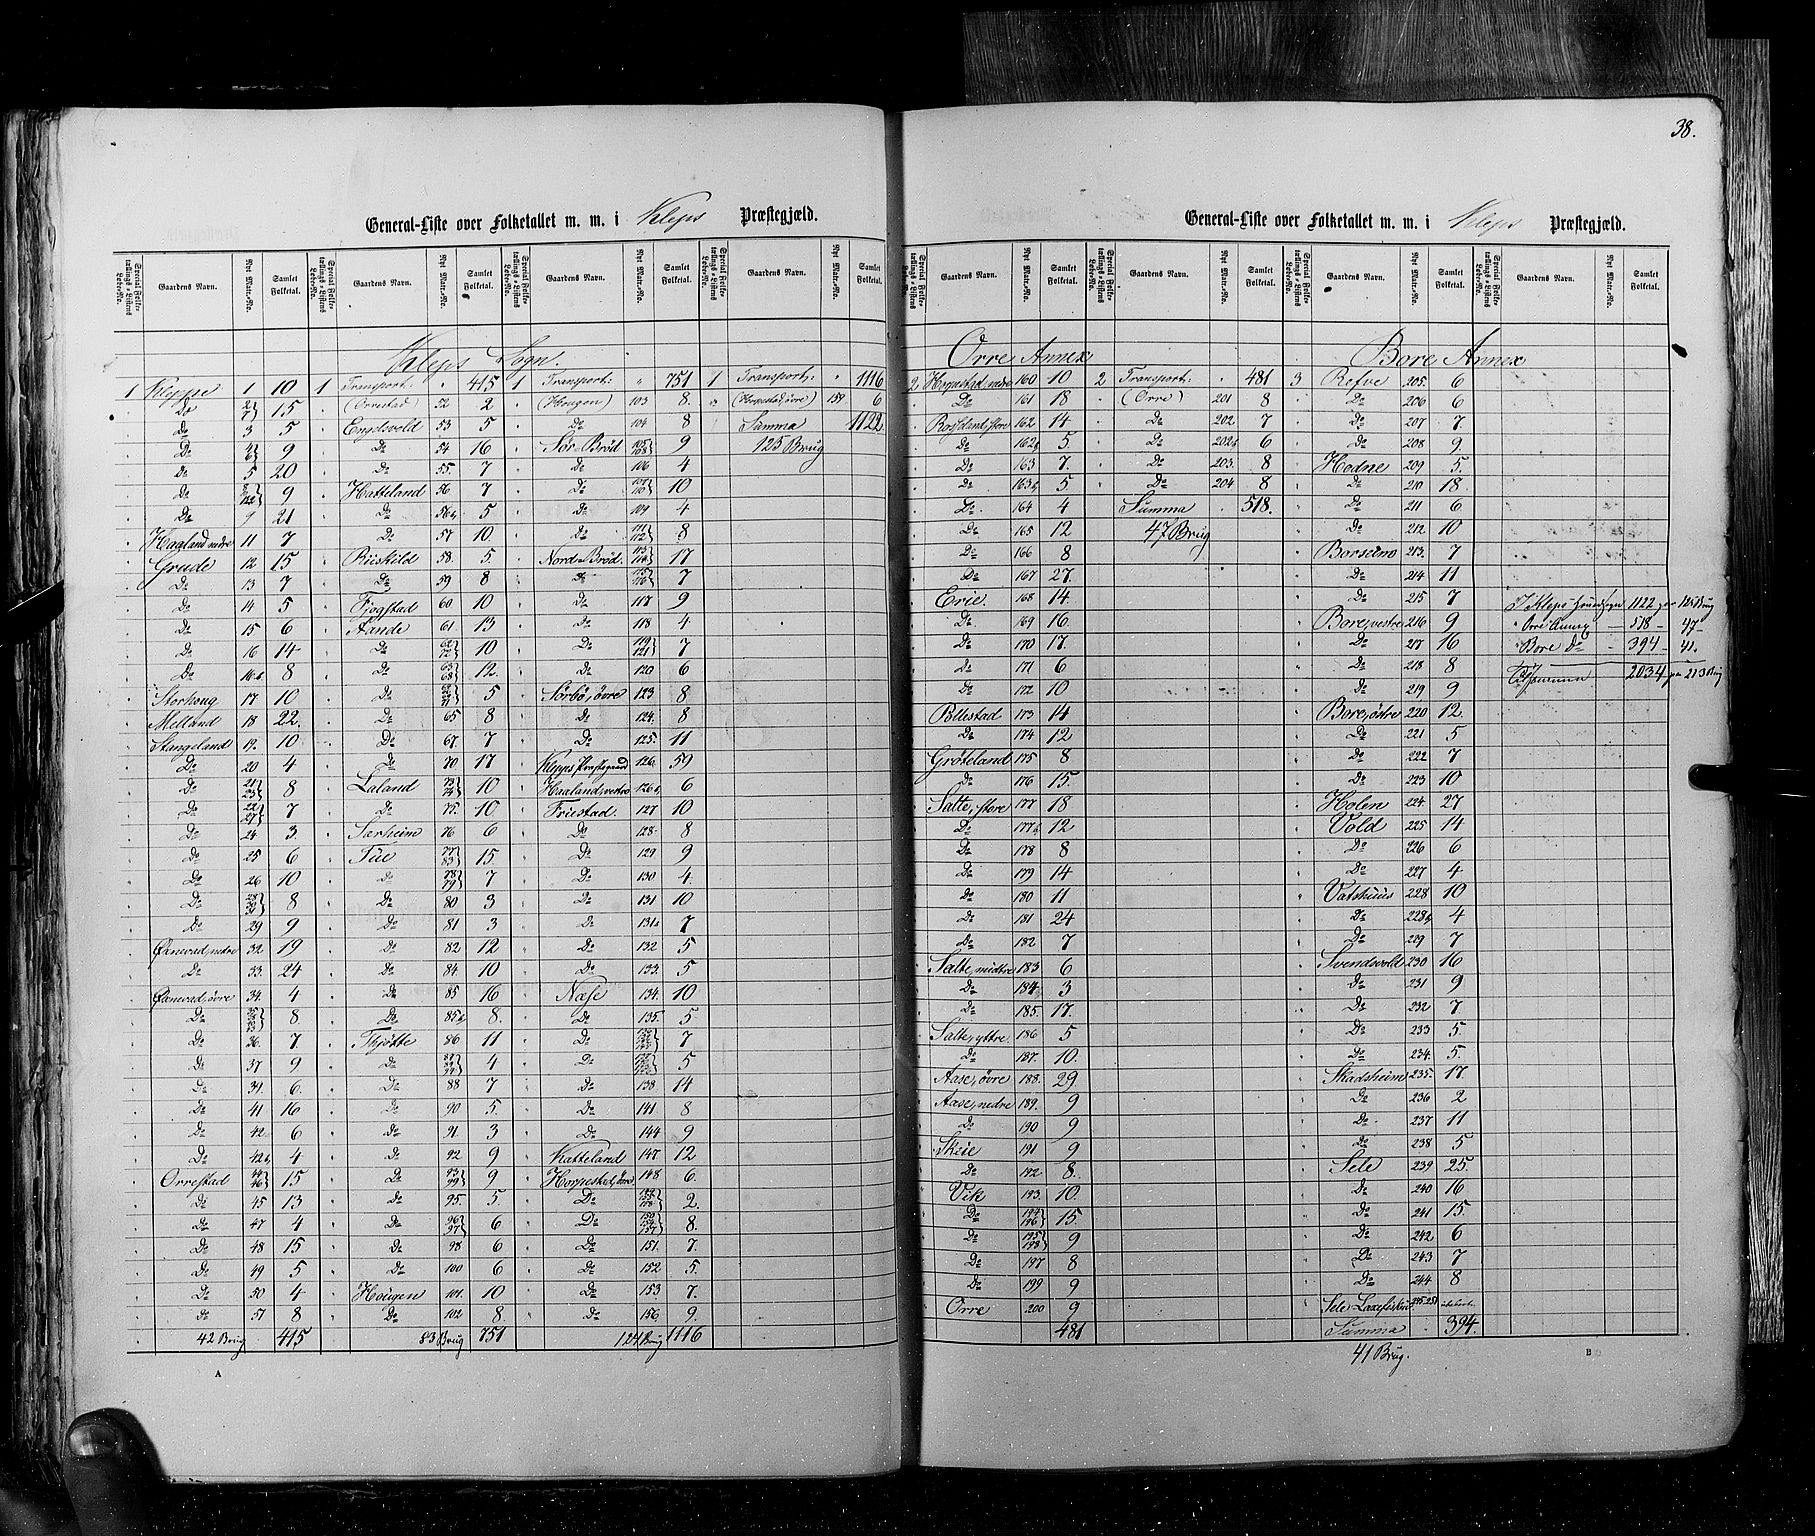 38.
General-Liste over Folketallet m. m. i Kleps Præstegjæld.
Special Folketællings-Listens Løbe-No. Gaardens Navn. Nyt Matr.-No. Samlet Folketal. Special Folketællings-Listens Løbe-No. Gaardens Navn. Nyt Matr.-No. Samlet Folketal. Special Folketællings-Listens Løbe-No. Gaardens Navn. Nyt Matr.-No. Samlet Folketal. Special Folketællings-Listens Løbe-No. Gaardens Navn. Nyt Matr.-No. Samlet Folketal.
Kleps Sogn.
1 Kleppe 1 10 1 Transport: " 415 1 Transport: " 751 1 Transport: " 1116
Do 15 (Orrestad) 52 2 (Hougen) 103 8 (Horpestad, øvre) 159 6
Do 3 5 Engelsvold 53 5 Do 104 8 Summa 1122
Do 9 Do 54 16 Sør-Brød 9 125 Brug
Do 5 20 Do 55 7 Do 106 4
Do 9 Hatteland 56 7 Do 10
Do 9 21 Do 56b 5 Do 109 4
Haaland nedre 11 7 Do 57 10 Do 111 112 8
Grude 12 15 Riiskild 58 5 Nord-Brød 17
Do 13 7 Do 59 8 Do 7
Do 14 5 Fjogstad 60 10 Do 117 9
Do 15 6 Aande 61 13 Do 118 4
Do 16 14 Do 62 72 10 Do 119 121 7
Do 16b 8 Do 63 68 12 Do 120 6
Storhoug 17 10 Do 5 Sørbø, øvre 123 8
Melland 18 22 Do 65 8 Do 124 8
Stangeland 19 10 Do 67 7 Do 125 11
Do 20 4 Do 70 17 Klepps Præstegaard 126 59
Do 21 23 8 Laland 73 74 10 Haaland, vestre 126b 6
Do 22 27 7 Do 75 10 Friestad 127 10
Do 24 3 Sarheim 76 6 Do 128 8
Do 25 6 Tue 77 83 15 Do 129 9
Do 26 10 Do 78 79 7 Do 130 4
Do 28 30 31 8 Do 80 3 Do 131 10
Do 29 9 Do 81 3 Do 131b 7
Øxnevad, nedre 32 19 Do 82 12 Do 132 5
Do 33 24 Do 84 10 Do 133 5
Øxnevad, øvre 34 4 Do 85 16 Næse 134 10
Do 8 Do 85b 8 Do 135 5
Do 36 7 Thjøtte 86 11 Do 7
Do 37 9 Do 4 Do 5
Do 6 Do 88 7 Do 138 14
Do 41 16 Do 90 5 Do 141 8
Do 42 6 Do 91 3 Do 144 9
Do 42b 4 Do 92 9 Katteland 147 12
Orrestad 44 46 15 Do 93 99 9 Horpestad, øvre 148 6
Do 45 13 Do 95 5 Do 2
Do 47 4 Do 96 97 6 Do 8
Do 48 15 Do 98 6 Do 151 7
Do 49 5 Do 100 6 Do 152 5
Do 50 4 Hougen 101 10 Do 153 7
Do 51 8 Do 102 8 Do 156 9
42 Brug 415 83 Brug 751 124 Brug 1116
A
General-Liste over Folketallet m. m. i Kleps Præstegjæld.
Special Folketællings-Listens Løbe-No. Gaardens Navn. Nyt Matr.-No. Samlet Folketal. Special Folketællings-Listens Løbe-No. Gaardens Navn. Nyt Matr.-No. Samlet Folketal. Special Folketællings-Listens Løbe-No. Gaardens Navn. Nyt Matr.-No. Samlet Folketal. Special Folketællings-Listens Løbe-No. Gaardens Navn. Nyt Matr.-No. Samlet Folketal.
Orre Annex Bore Annex
2 Horpestad, nedre 160 10 2 Transport: " 481 3 Refve 205 6
Do 161 18 (Orre) 201 8 Do 206 6
Rosland, store 162 14 Do 202 7 Do 207 7
Do 162b 5 Do 202b 6 Do 208 9
Do 163 7 Do 203 8 Hodne 209 5
Do 163b 5 Do 204 8 Do 210 18
Do 164 4 Summa 518 Do 211 6
Do 165 12 47 Brug Do 212 10
Do 166 8 Borsemo 213 7
Do 167 27 Do 214 11
Erie 168 14 Do 215 7 1122 125 Brug
Do 169 16 Bore, vestre 216 9 Orre Annex 518 47
Do 170 17 Do 217 16 Bore Do 394 41
Do 171 6 Do 218 8 2034 213 Brug
Do 172 10 Do 219 9
Pollestad 173 14 Bore, østre 220 12
Do 174 12 Do 221 5
Grøteland 175 8 Do 222 7
Do 176 15 Do 223 10
Salte, store 177 18 Holen 224 27
Do 177b 12 Vold 225 14
Do 178 8 Do 226 6
Do 179 14 Do 227 4
Do 180 11 Vatshuus 228 10
Do 181 24 Do 228b 4
Do 182 7 Do 229 7
Salte, midtre 183 6 Svendsvold 230 16
Do 184 3 Do 231 9
Do 185 17 Do 232 7
Salte, yttre 186 5 Do 233 5
Do 187 10 Do 234 5
Aase, øvre 188 29 Skadsheim 235 17
Aase, nedre 189 9 Do 236 2
Do 190 9 Do 237 11
Skeie 191 9 Do 238 5
Do 192 8 Sele 239 25
Vik 193 10 Do 240 16
Do 194 196 15 Do 241 15
Do 195 198 9 Do 242 6
Do 197 8 Do 243 7
Do 199 9 Do 244 8
Orre 200 9 Sele Laxefiskeri 245-251
481 Summa 394
41 Brug.
B